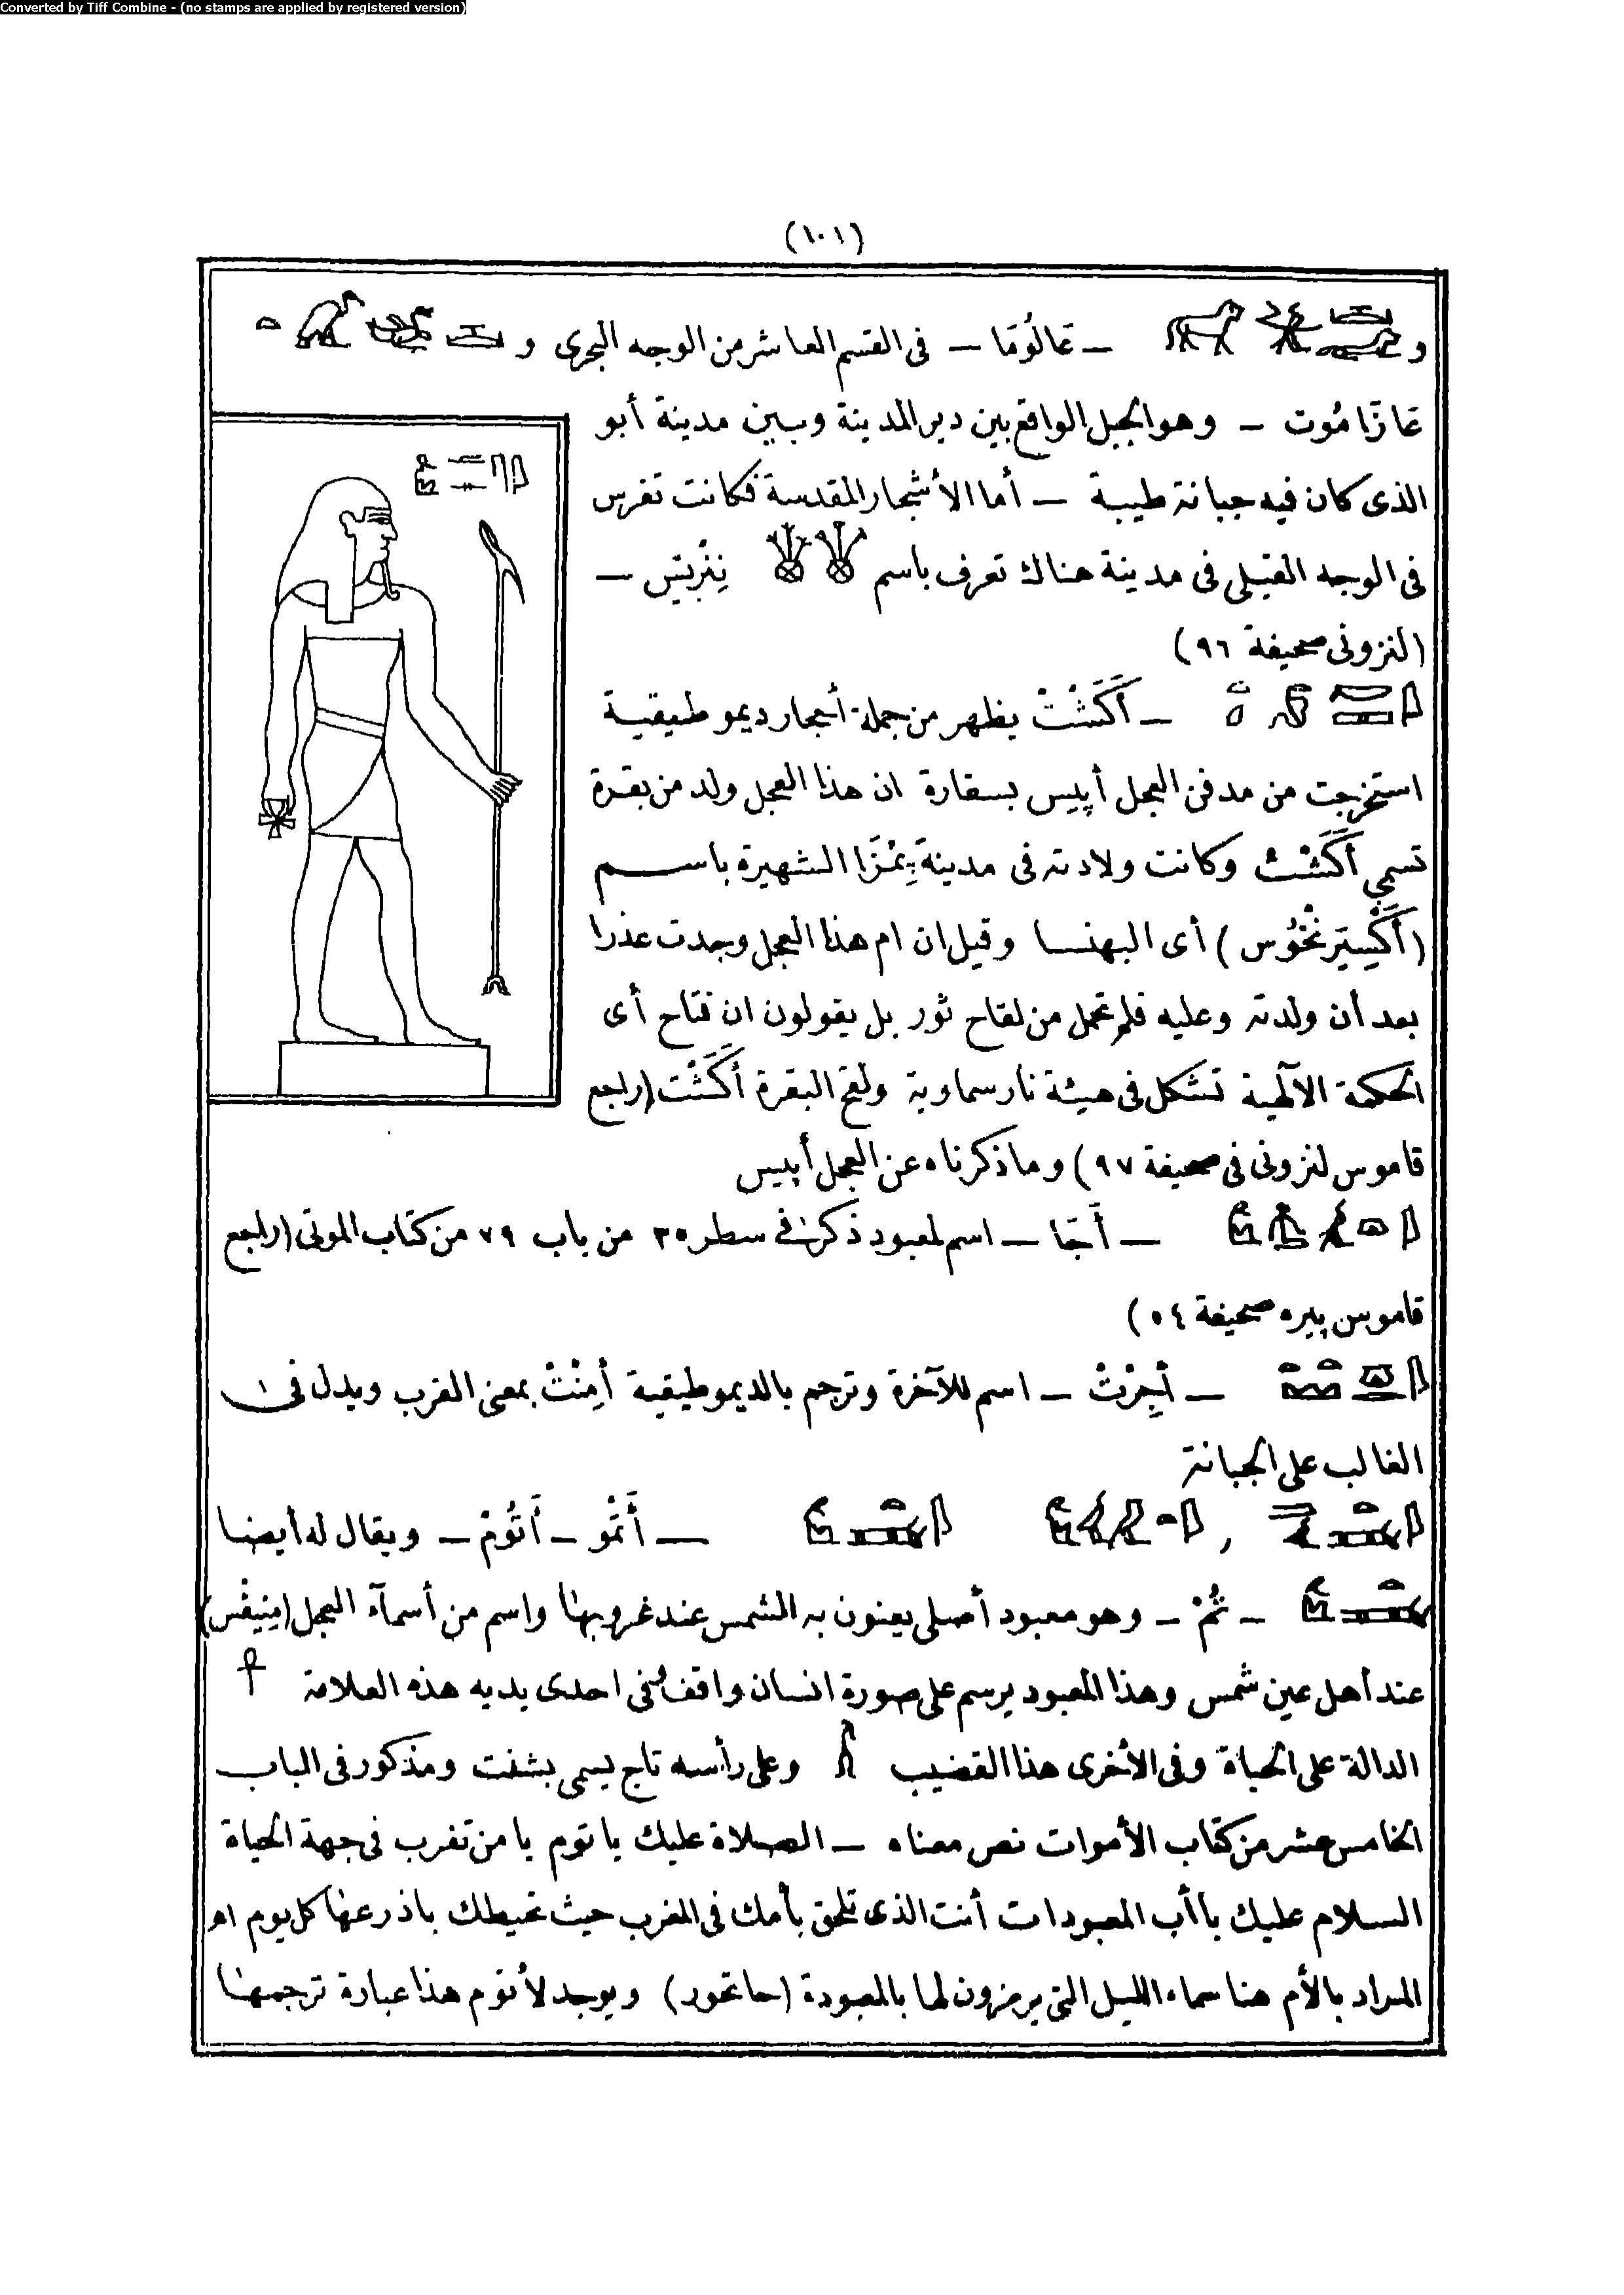 Converted by Tiff Combine - (no stamps are applied by registered version)
(١٠١)
و — عَالُومَا — فى القسم العاشر من الوجه البحرى و
عَازَامُوت — وهو الجبل الواقع بين دير المدينة وبين مدينة أبو
الذى كان فيه جبانة طيبة — أما الأشجار المقدسة فكانت تغرس
فى الوجه القبلى فى مدينة هناك تعرف باسم —
(لنزونى صحيفة ٩٦)
— أَكَسْتْ يظهر من جملة أحجار ديموطيقية
استخرجت من مدفن العجل أپيس بسقارة ان هذا العجل ولد من بقرة
تسمى أَكَسْتْ وكانت ولادته فى مدينة پِمْزَا الشهيرة باسم
(أَكْسِيرِنْخُوس) أى البهنسا وقيل ان ام هذا العجل وجدت عذرا
بعد أن ولدته وعليه فلم تحمل من لقاح ثور بل يقولون ان فتاح أى
الحكمة الآلهية تشكل فى هيئة نار سماوية ولقح البقرة أَكَسْت (راجع
قاموس لنزونى فى صحيفة ٩٧) وما ذكرناه عن العجل أپيس
— أَجَا — اسم لمعبود ذكر فى سطر ٣٥ من باب ٧٩ من كتاب الموتى (راجع
قاموس پيره صحيفة ٥٤)
— أَجِرْتْ — اسم للآخرة وترجم بالديموطيقية أَمِنْتْ بمعنى الغرب ويدل فى
الغالب على الجبانة
, — أَتْمُو — أَتُومْ — ويقال له أيضا
— تُمْ — وهو معبود أصلى يعنون به الشمس عند غروبها واسم من أسمآء العجل (مِنِيفِس)
عند أهل عين شمس وهذا المعبود يرسم على صورة انسان واقف وفى احدى يديه هذه العلامة
الدالة على الحياة وفى الأخرى هذا القضيب وعلى رأسه تاج يسمى بشنت ومذكور فى الباب
الخامس عشر من كتاب الأموات نص معناه — الصلاة عليك يا توم يا من تغرب فى جهة الحياة
السلام عليك يا أب المعبودات أنت الذى تلحق بأمك فى المغرب حيث تحيطك باذرعها كل يوم اه
المراد بالأم هنا سماء الليل التى يرمزون لها بالمعبودة (حاتحور) ويوجد لأتوم هذا عبارة ترجمتها